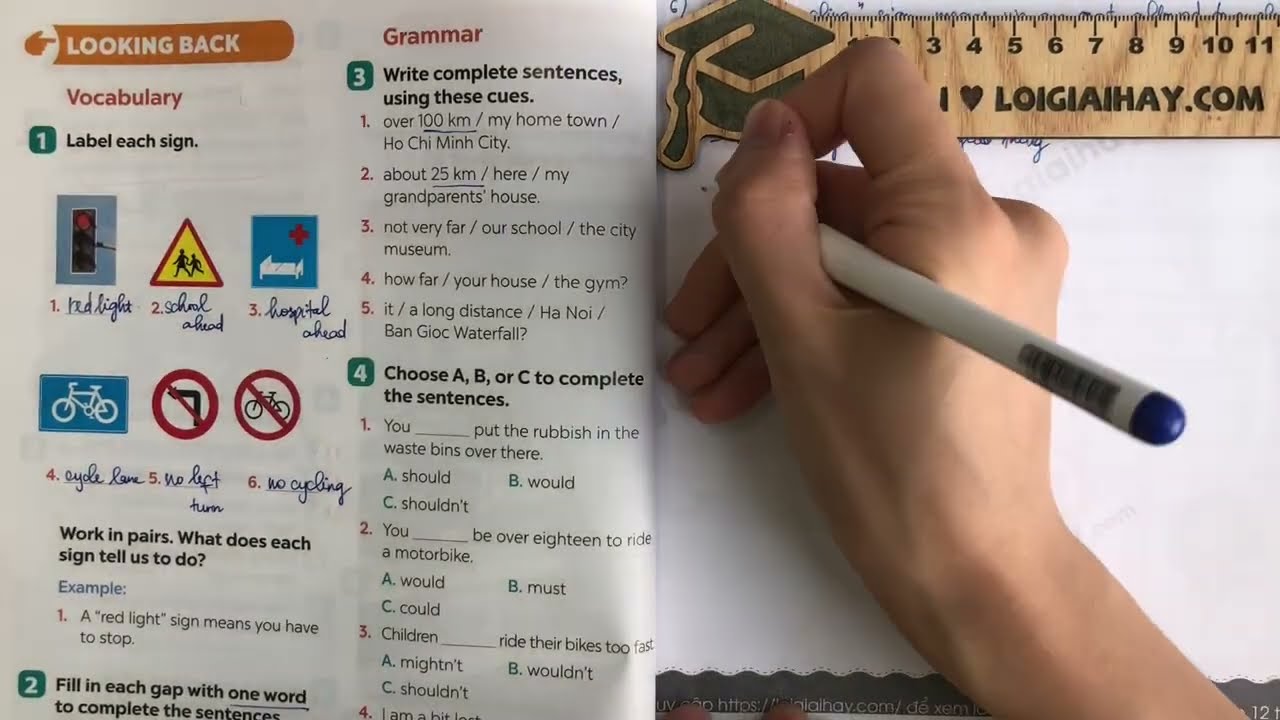 LOOKING BACK
Vocabulary
1 Label each sign.
1. red light
2. school
ahead
3. hospital
ahead
4. cycle lane
5. no left
turn
6. no cycling
Work in pairs. What does each
sign tell us to do?
Example:
1. A "red light" sign means you have
to stop.
2 Fill in each gap with one word
to complete the sentences
Grammar
3 Write complete sentences,
using these cues.
1. over 100 km / my home town /
Ho Chi Minh City.
2. about 25 km / here / my
grandparents' house.
3. not very far / our school / the city
museum.
4. how far / your house / the gym?
5. it / a long distance / Ha Noi /
Ban Gioc Waterfall?
4 Choose A, B, or C to complete
the sentences.
1. You ______ put the rubbish in the
waste bins over there.
A. should B. would
C. shouldn't
2. You ______ be over eighteen to ride
a motorbike.
A. would B. must
C. could
3. Children ______ ride their bikes too fast
A. mightn't B. wouldn't
C. shouldn't
4. I am a bit lost
6)
3 4 5 6 7 8 9 10 11
I ♥ LOIGIAIHAY.COM
cập https://loigiaihay.com/ để xem